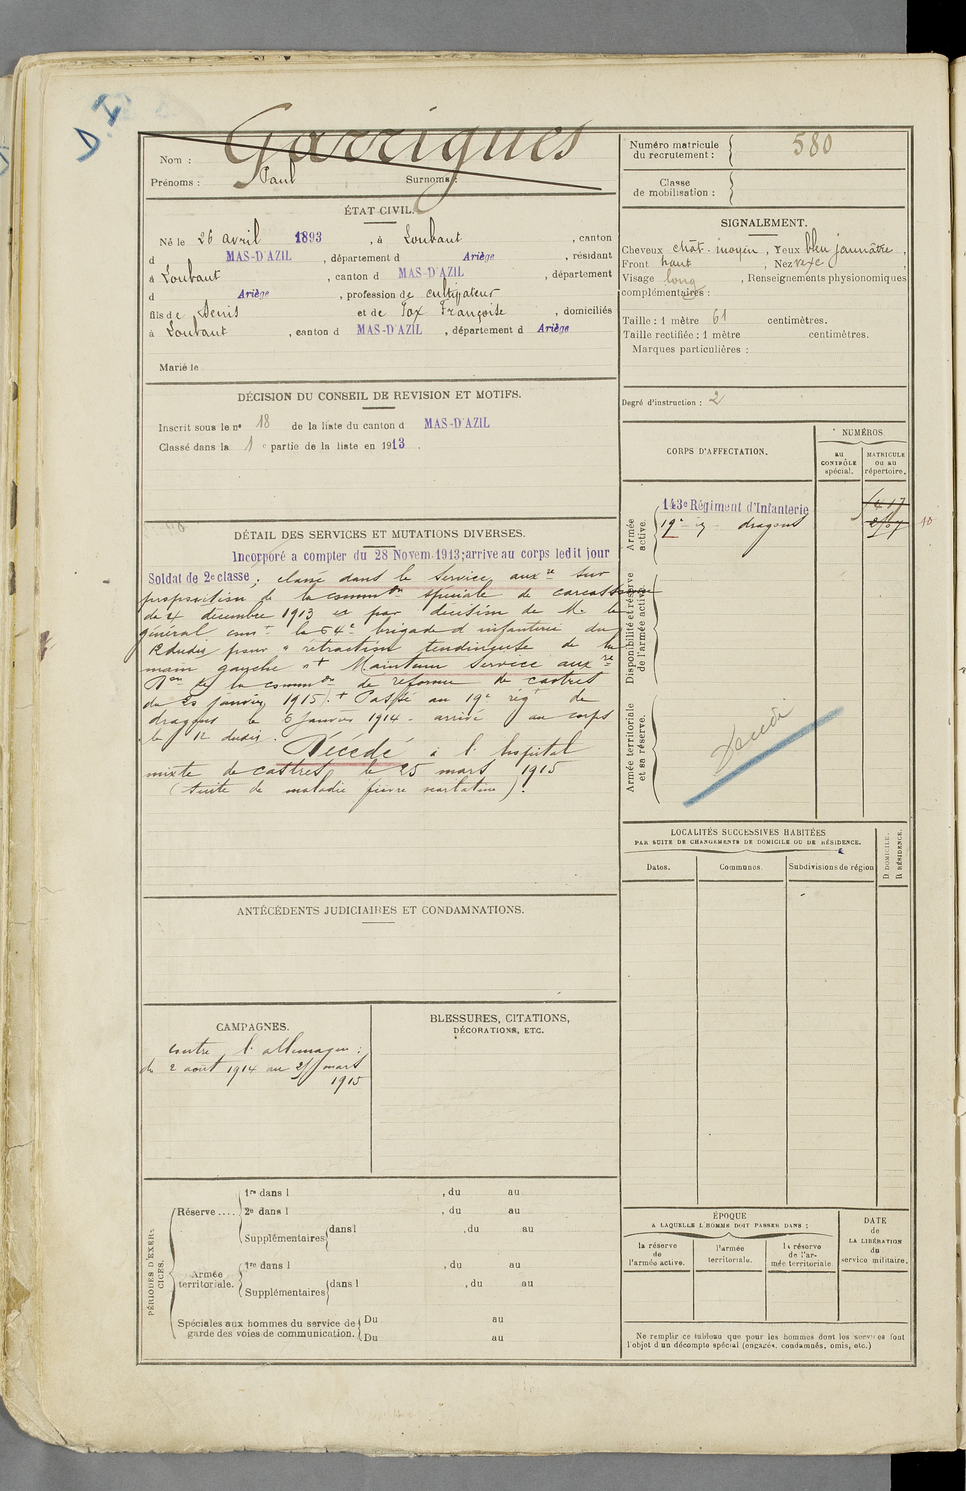 Garrigues
Nom :
Prénoms : Paul Surnoms :
Numéro matricule du recrutement : 580
Classe de mobilisation :
ÉTAT CIVIL.
Né le 26 avril 1893, à Loubaut, canton
d MAS-D'AZIL, département d Ariège, résidant
à Loubaut, canton d MAS-D'AZIL, département
d Ariège, profession de cultivateur
fils de Denis et de Pox Françoise, domiciliés
à Loubaut, canton d MAS-D'AZIL, département d Ariège
Marié le
SIGNALEMENT.
Cheveux chât. moyen, Yeux bleu jaunâtre,
Front haut, Nez vexe,
Visage long, Renseignements physionomiques
complémentaires :
Taille : 1 mètre 61 centimètres.
Taille rectifiée : 1 mètre centimètres.
Marques particulières :
Degré d'instruction : 2
DÉCISION DU CONSEIL DE REVISION ET MOTIFS.
Inscrit sous le no 18 de la liste du canton d MAS-D'AZIL
Classé dans la 1 e partie de la liste en 1913.
CORPS D'AFFECTATION.
NUMÉROS
au CONTRÔLE spécial.
MATRICULE ou au répertoire.
Armée active.
143e Régiment d'Infanterie
19e " dragons
10
Disponibilité et réserve de l'armée active.
Armée territoriale et sa réserve.
Décédé
DÉTAIL DES SERVICES ET MUTATIONS DIVERSES.
Incorporé a compter du 28 Novem. 1913; arrive au corps ledit jour
Soldat de 2e classe; classé dans le service auxre sur
proposition de la common spéciale de carcassonne
du 4 décembre 1913 et par décision de M. le
général comt la 64e brigade d'infanterie du
12 dudit pour " rétraction tendineuse de la
main gauche "+ Maintenu service auxre
Don de la common de réforme de castres
du 20 janvier 1915). + Passé au 19e régt de
dragons le 6 janvier 1914 - arrivé au corps
le 12 dudit. Décédé à l'hospital
mixte de castres le 25 mars 1915
(suite de maladie fièvre scarlatine).
LOCALITÉS SUCCESSIVES HABITÉES
PAR SUITE DE CHANGEMENTS DE DOMICILE OU DE RÉSIDENCE.
Dates. Communes. Subdivisions de région
D. DOMICILE.
R. RÉSIDENCE.
ANTÉCÉDENTS JUDICIAIRES ET CONDAMNATIONS.
CAMPAGNES.
contre l'allemagne :
du 2 août 1914 au 25 mars
1915
BLESSURES, CITATIONS,
DÉCORATIONS, ETC.
PÉRIODES D'EXERCICES.
Réserve ....
1re dans l , du au
2e dans l , du au
Supplémentaires dans l , du au
Armée territoriale.
1re dans l , du au
Supplémentaires dans l , du au
Spéciales aux hommes du service de garde des voies de communication.
Du au
Du au
ÉPOQUE
A LAQUELLE L'HOMME DOIT PASSER DANS :
la réserve de l'armée active.
l'armée territoriale.
la réserve de l'armée territoriale
DATE de LA LIBÉRATION du service militaire.
Ne remplir ce tableau que pour les hommes dont les services font
l'objet d'un décompte spécial (engagés, condamnés, omis, etc.)